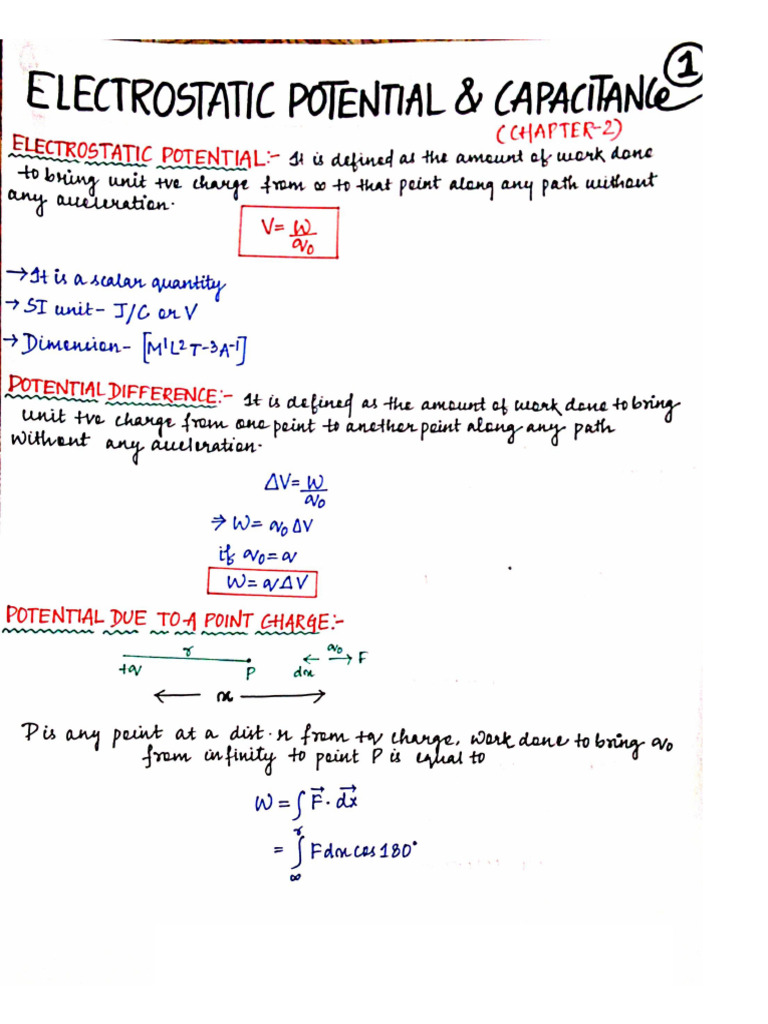 1
ELECTROSTATIC POTENTIAL & CAPACITANCE
(CHAPTER-2)
ELECTROSTATIC POTENTIAL:- It is defined as the amount of work done
to bring unit +ve charge from ∞ to that point along any path without
any acceleration.
V= W/q₀
→ It is a scalar quantity
→ SI unit- J/C or V
→ Dimension- [M¹L²T⁻³A⁻¹]
POTENTIAL DIFFERENCE:- It is defined as the amount of work done to bring
unit +ve charge from one point to another point along any path
without any acceleration.
ΔV= W/q₀
⇒ W= q₀ΔV
if q₀=q
W=qΔV
POTENTIAL DUE TO A POINT CHARGE:-
r q₀
+q P dx F
x
P is any point at a dist. r from +q charge, Work done to bring q₀
from infinity to point P is equal to
W = ∫F⃗. dx⃗
= ∫_∞^r Fdx cos180°